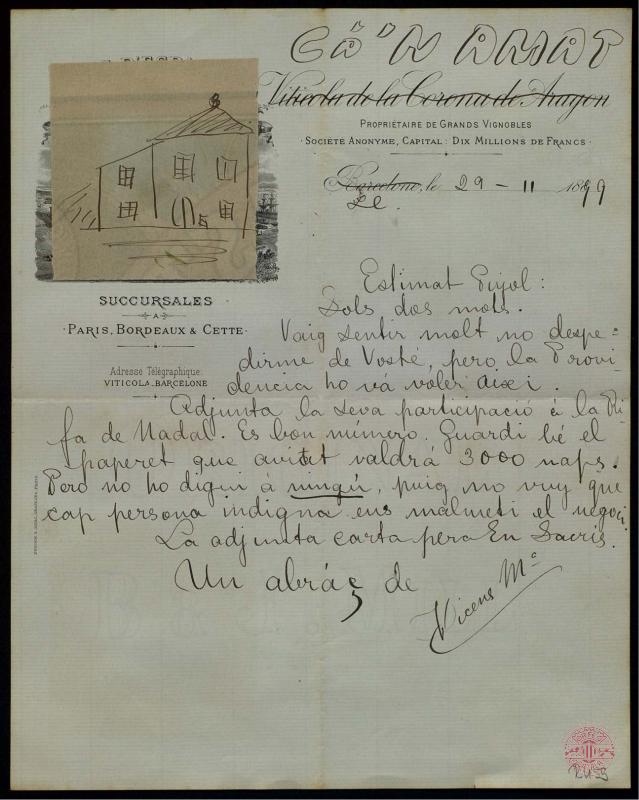 CÄ'N AMAT
Viticola de la Corona de Aragon
PROPRIÉTAIRE DE GRANDS VIGNOBLES
SOCIÉTÉ ANONYME, CAPITAL: DIX MILLIONS DE FRANCS
Barcelone, le 29 - 11 1899
SUCCURSALES
A
PARIS, BORDEAUX & CETTE
Adresse Télégraphique:
VITICOLA-BARCELONE
Estimat Pijol:
Sols dos mots.
Vaig sentir molt no despe-
dirme de Vosté, pero la Provi-
dencia ho vá voler aixi.
Adjunta la seva participació á la Ri-
fa de Nadal. Es bon número. Guardi bé el
paperet que aviat valdrá 3000 naps.
Pero no ho digui à ningú, puig no vuy que
cap persona indigna ens malmeti el negoci.
La adjunta carta pera En Sacris.
Un abráç de
Vicens Mª